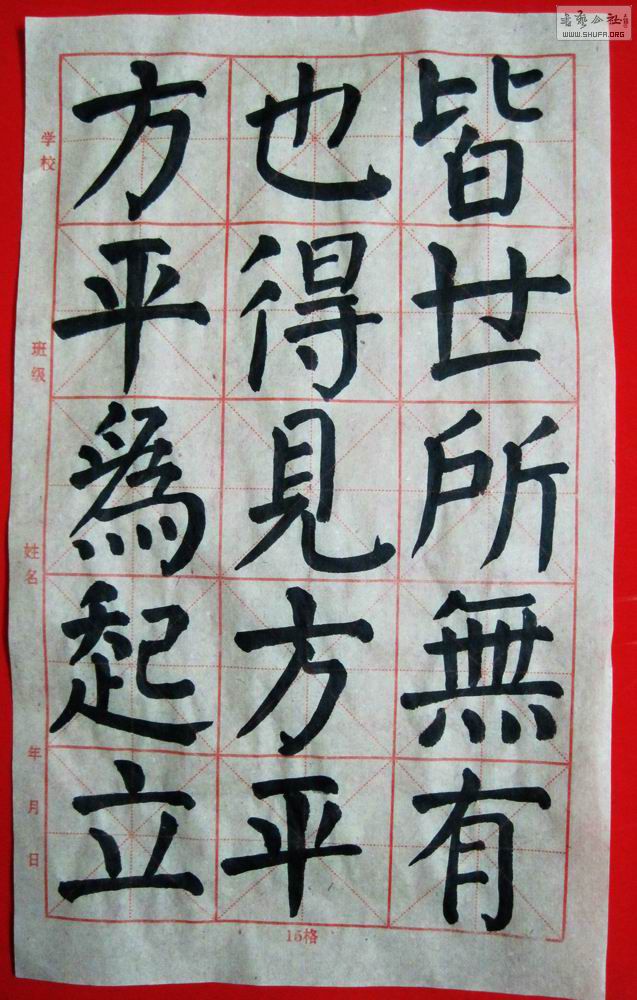 皆卋所無有
也得見方平
方平爲起立
学校
班级
姓名
年月日
15格
WWW.SHUFA.ORG